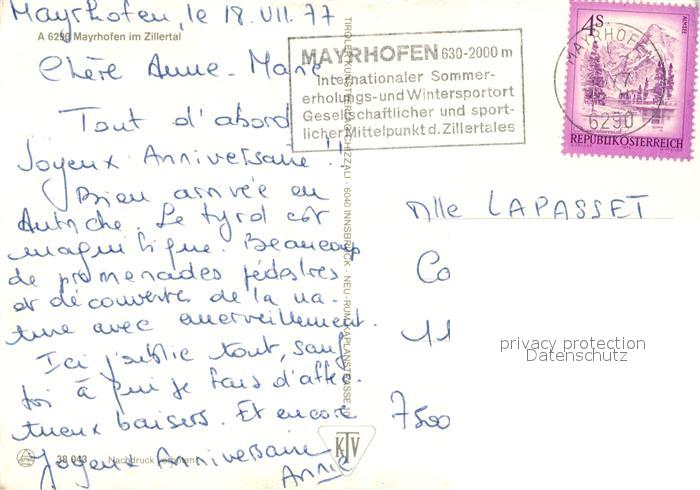 Mayrhofen, le 18.VII.77
A 6290 Mayrhofen im Zillertal
Chère Anne-Marie
Tout d'abord
Joyeux Anniversaire !!
Bien arrivée en
Autriche. Le tyrol est
magnifique. Beaucoup
de promenades pédestres
et découverte de la na-
ture avec émerveillement.
Ici j'oublie tout, sauf
toi à qui je fais d'affec-
tueux baisers. Et encore
Joyeux Anniversaire
Annie
38 043 Nachdruck verboten
TIROLER KUNSTVERLAG CHIZZALI · 6040 INNSBRUCK · NEU-RUM, KAPLANSTRASSE
KTV
MAYRHOFEN 630-2000 m
Internationaler Sommer-
erholungs-und Wintersportort
Gesellschaftlicher und sport-
licher Mittelpunkt d. Zillertales
MAYRHOFEN
6290
4S
ALMSEE
REPUBLIK ÖSTERREICH
Mlle LAPASSET
Co
11
7500
privacy protection
Datenschutz